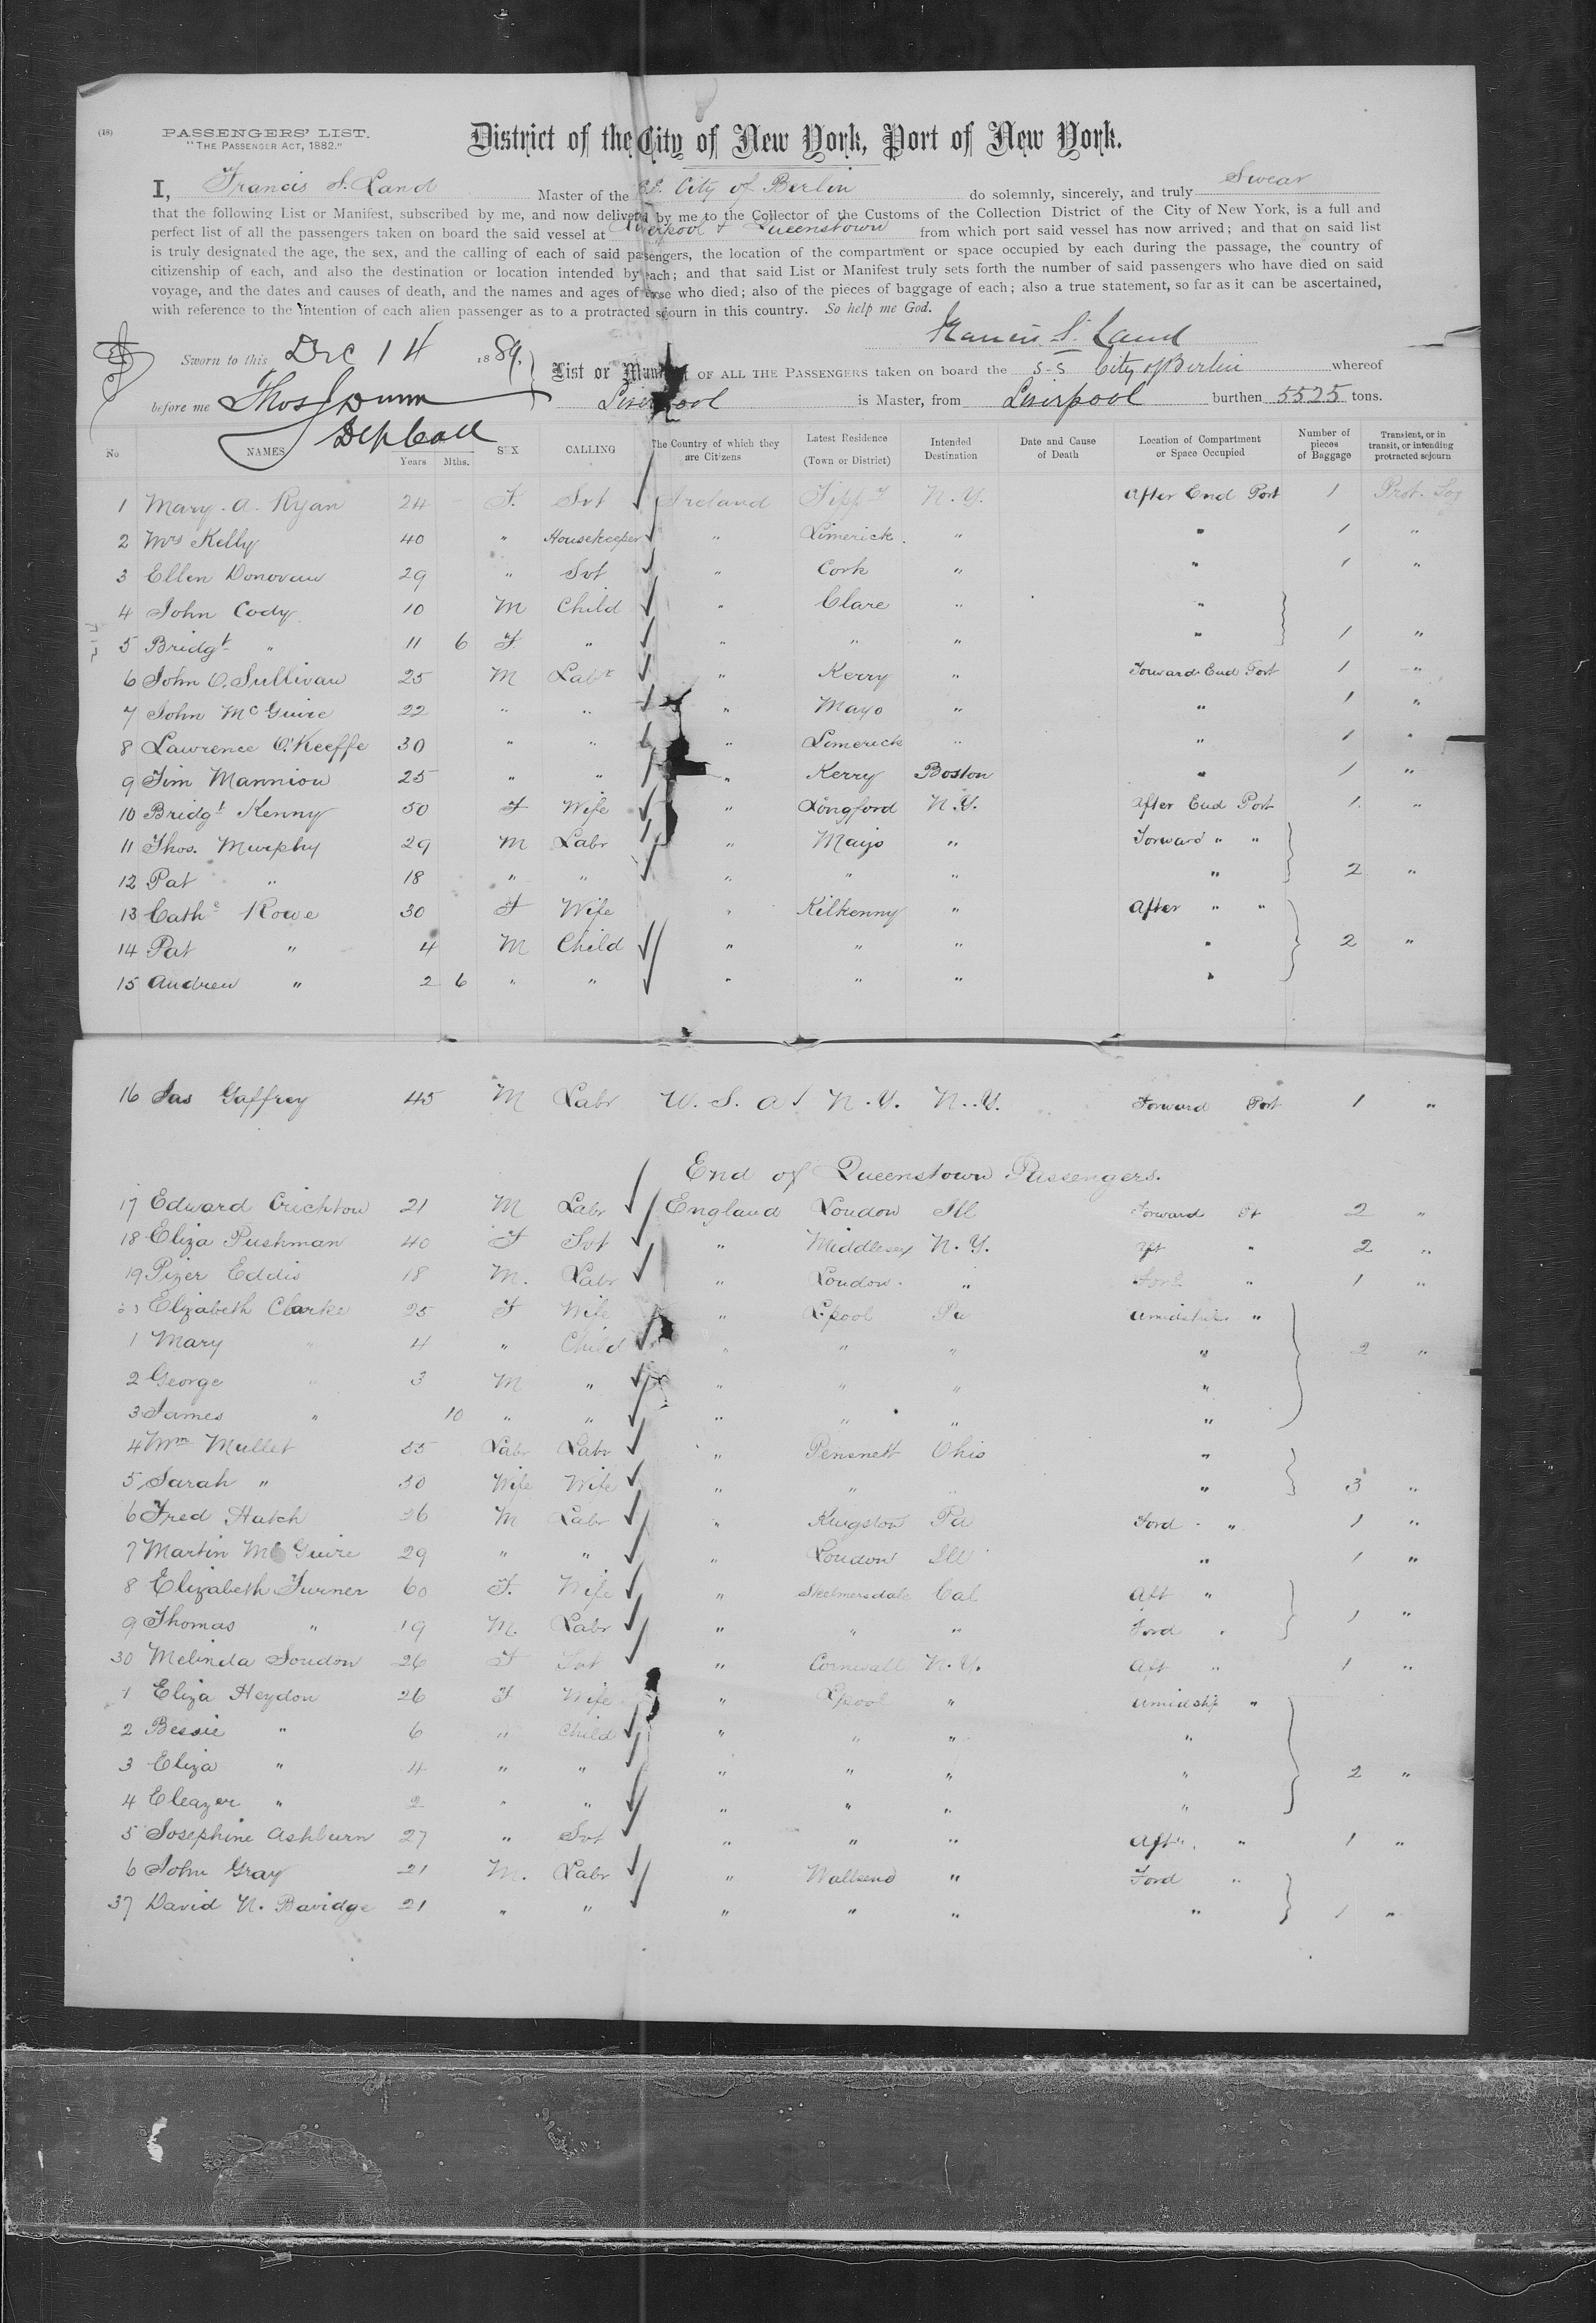 (18)
PASSENGERS' LIST.
"THE PASSENGER ACT, 1882."
District of the City of New York, Port of New York.
I, Francis S. Land Master of the S.S. City of Berlin do solemnly, sincerely, and truly Swear
that the following List or Manifest, subscribed by me, and now delivered by me to the Collector of the Customs of the Collection District of the City of New York, is a full and
perfect list of all the passengers taken on board the said vessel at Liverpool & Queenstown from which port said vessel has now arrived; and that on said list
is truly designated the age, the sex, and the calling of each of said passengers, the location of the compartment or space occupied by each during the passage, the country of
citizenship of each, and also the destination or location intended by each; and that said List or Manifest truly sets forth the number of said passengers who have died on said
voyage, and the dates and causes of death, and the names and ages of those who died; also of the pieces of baggage of each; also a true statement, so far as it can be ascertained,
with reference to the intention of each alien passenger as to a protracted sojourn in this country. So help me God.
Francis S. Land
Sworn to this Dec 14 1889.
List or Manifest OF ALL THE PASSENGERS taken on board the S-S City of Berlin whereof
before me Thos J Dunn Liverpool is Master, from Liverpool burthen 5525 tons.
Dep Coll
No NAMES Years Mths. SEX CALLING The Country of which they are Citizens Latest Residence (Town or District) Intended Destination Date and Cause of Death Location of Compartment or Space Occupied Number of pieces of Baggage Transient, or in transit, or intending protracted sejourn
1 Mary. A. Ryan 24 - F. Svt Ireland Tippy N.Y. After End Port 1 Prot. Soj
2 Mrs Kelly 40 " Housekeeper " Limerick. " " 1 "
3 Ellen Donovan 29 " Svt " Cork " " 1 "
4 John Cody 10 M Child " Clare " "
5 Bridgt " 11 6 F. " " " " " 1 "
6 John O. Sullivan 25 M Labr " Kerry " Forward End Port 1 "
7 John McGuire 22 " " " Mayo " " 1 "
8 Lawrence O'Keeffe 30 " " " Limerick " " 1 "
9 Jim Mannion 25 " " " Kerry Boston " 1 "
10 Bridgt Kenny 50 F Wife " Longford N.Y. After End Port 1 "
11 Thos. Murphy 29 M Labr " Mayo " Forward " "
12 Pat " 18 " " " " " " 2 "
13 Cathe Rowe 30 F Wife " Kilkenny " After " "
14 Pat " 4 M Child " " " " 2 "
15 Andrew " 2 6 " " " " " "
16 Jas Gaffrey 45 M Labr U.S.A N.Y. N.Y. Forward Port 1 "
End of Queenstown Passengers.
17 Edward Crichton 21 M Labr England London Ill Forward Pt 2 "
18 Eliza Pushman 40 F Svt " Middlesex N.Y. Aft " 2 "
19 Pizer Eddis 18 M. Labr " London. " Ford " 1 "
Elizabeth Clarke 25 F Wife " L'pool Pa Amidships "
1 Mary " 4 " Child " " " " 2 "
2 George " 3 M " " " " "
3 James " 10 " " " " " "
4 Wm Mullet 35 Labr Labr " Pensnett Ohio "
5 Sarah " 30 Wife Wife " " " " 3 "
6 Fred Hatch 26 M Labr " Kingston Pa Ford " 1 "
7 Martin McGuire 29 " " " London Ill " 1 "
8 Elizabeth Turner 60 F. Wife " Skelmersdale Cal Aft "
9 Thomas " 19 M. Labr " " " Ford " 1 "
30 Melinda Soudon 26 F Svt " Cornwall N.Y. Aft " 1 "
1 Eliza Heydon 26 F Wife " Lpool " Amidship "
2 Bessie " 6 " Child " " " "
3 Eliza " 4 " " " " " " 2 "
4 Eleazer " 2 " " " " " "
5 Josephine Ashburn 27 " Svt " " " Aft. " 1 "
6 John Gray 21 M. Labr " Wallsend " Ford "
37 David N. Bavidge 21 " " " " " " 1 "